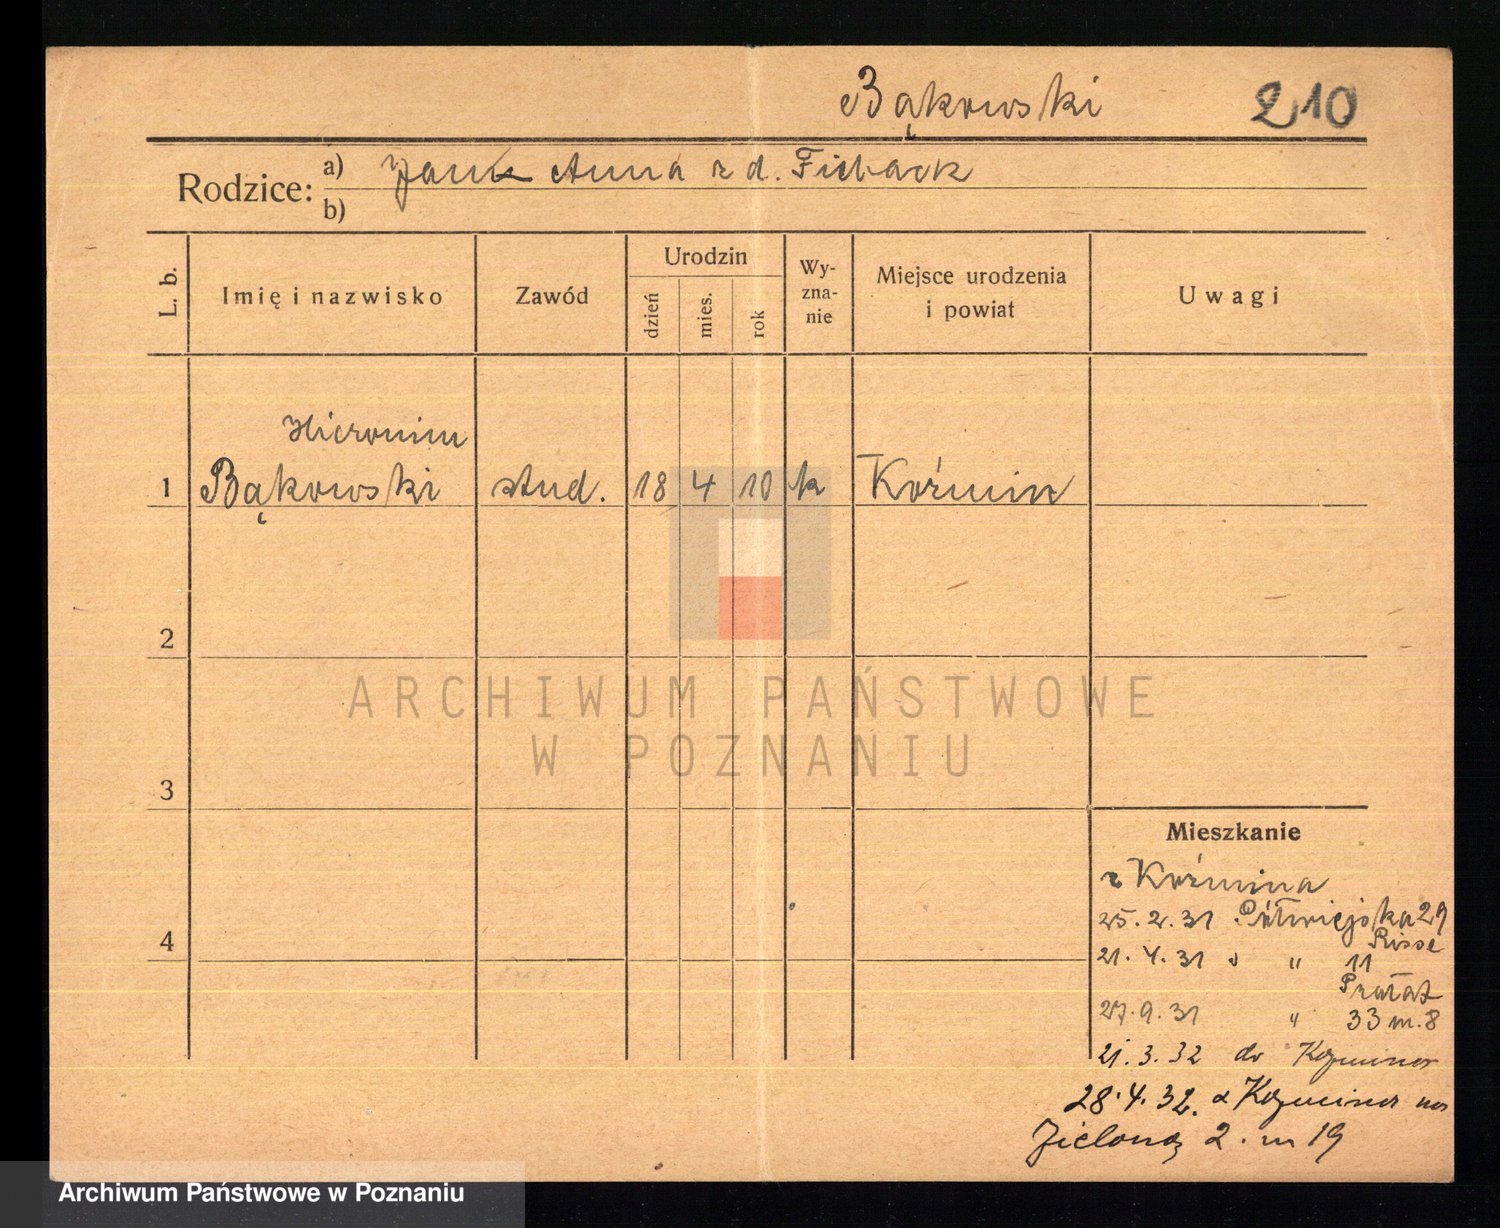 Bąkowski 210
Rodzice: a) Jan Anna z d.
b)
L. b.
Imię i nazwisko
Zawód
Urodzin
dzień
mies.
rok
Wy-
zna-
nie
Miejsce urodzenia
i powiat
Uwagi
Hieronim
1 Bąkowski stud. 18 4 10 k Koźmin
2
3
4
Mieszkanie
z Koźmina
25.2.31 Półwiejska 29
Risse
21.4.31 " 11
Prałat
27.9.31 " 33 m. 8
21.3.32 do Kozmina
28.4.32. z Kozmina na
Zieloną 2. m 19
ARCHIWUM PAŃSTWOWE
W POZNANIU
Archiwum Państwowe w Poznaniu